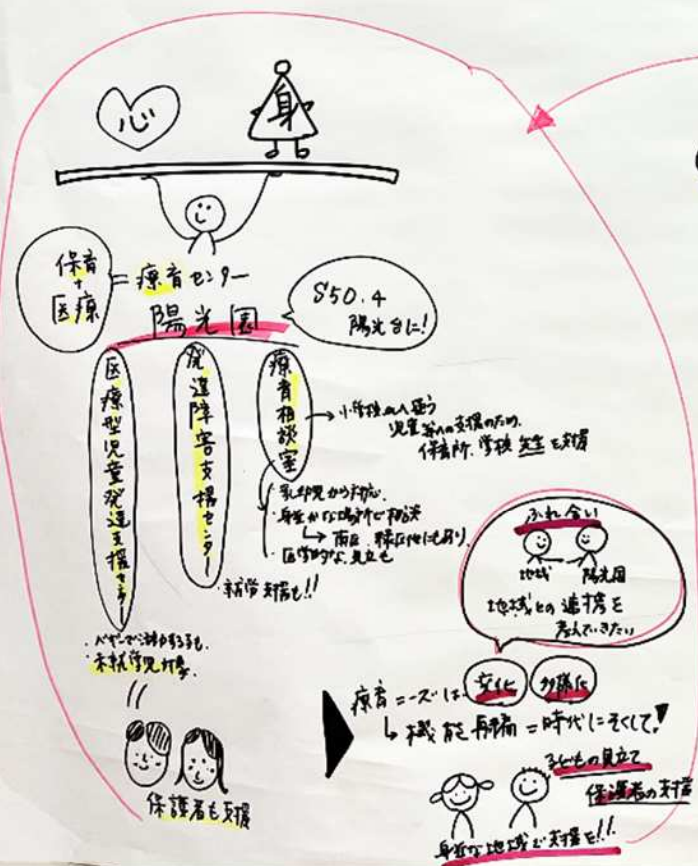 心
身
保育
+
医療
= 療育センター
陽光園
S50.4
陽光台に!
医療型児童発達支援センター
発達障害支援センター
療育相談室
→ 小学校
児童等への支援のため、
保育所、学校 先生を支援
・乳幼児から対応。
・身近かな場所で相談
↳ 南区、緑区他にも有り。
・医学的な見立も
・就学支援も!!
・バギーで
・未就学児対象。
保護者も支援
ふれ合い
地域 陽光園
地域との連携を
療育ニーズは 変化 多様化
↳ 機能再編 = 時代にそくして!
子どもの見立て
保護者の支援
身近な地域で支援を!!